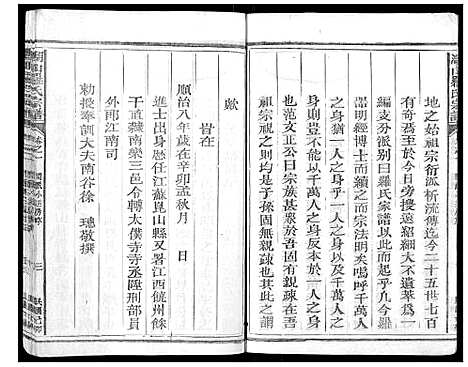 地之始祖宗衍派析流傳迄今二十五世七百
有奇矣至於今日旁搜遠紹細大不遺萃為一
編支分派別曰羅氏家譜以此而起乎幾今羅
嵓明經博士而續之而宗法明矣嗚呼千萬人
之身猶一人之身以一人之身而為千萬人之
身則豈不能以千萬人之身反本於一人之身
也范文正公曰宗族甚眾於吾固有親疎在吾
祖宗視之則均是子孫固無親疎也其此之謂
歟
旹在
順治八年歲在辛卯孟秋月　日
進士出身歷任江蘇崑山縣又署江西饒州餘
干直隸南欒三邑令轉太僕寺寺丞陞刑部員
外郎江南司
勑授奉訓大夫南谷徐　璁敬撰
三